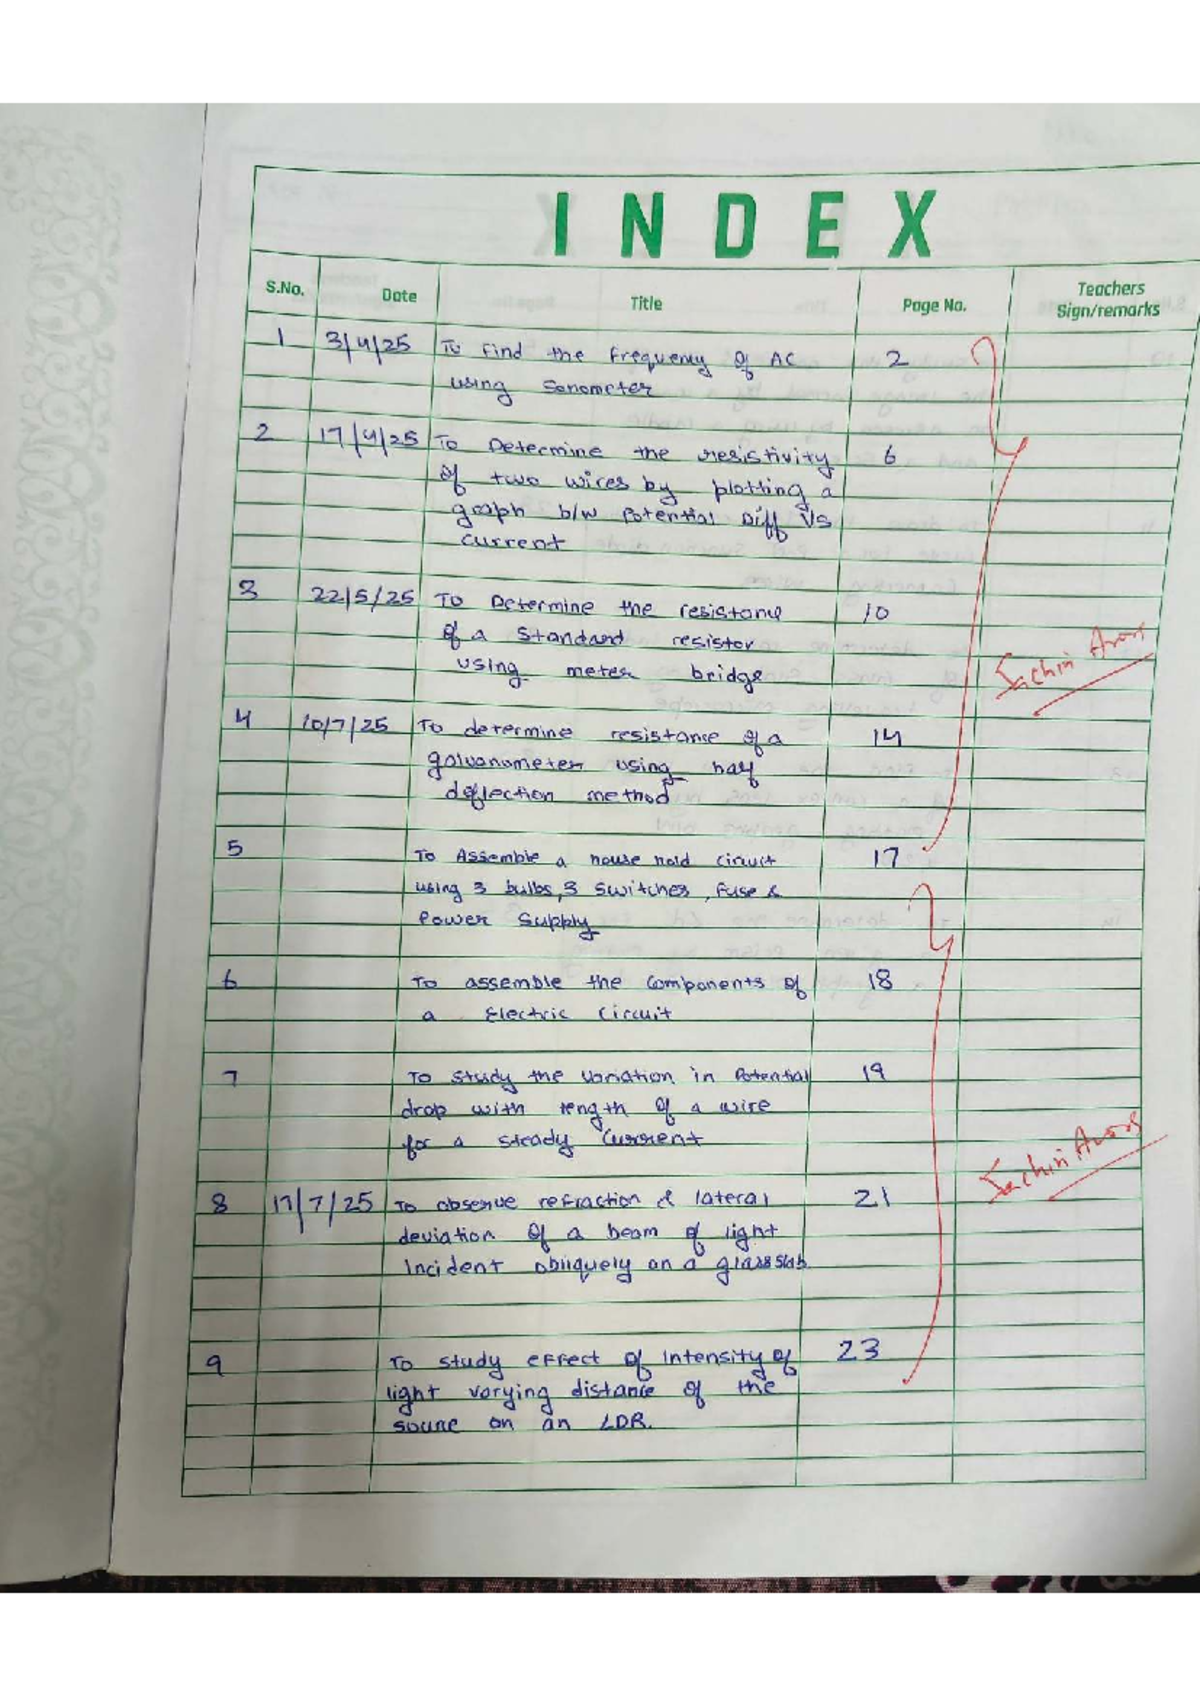 INDEX
S.No. Date Title Page No. Teachers Sign/remarks
1 3/4/25 To Find the Frequency Of AC 2
using Sonometer
2 17/4/25 To Determine the resistivity 6
Of two wires by plotting a
graph b/w Potential Diff Vs
Current
3 22/5/25 To Determine the resistance 10
Of a Standard resistor
using meter bridge
4 10/7/25 To determine resistance of a 14
galvanometer using half
deflection method
5 To Assemble a house hold circuit 17
using 3 bulbs, 3 Switches, Fuse &
Power Supply
6 To assemble the Components of 18
a Electric Circuit
7 To Study the Variation in Potential 19
drop with length Of a wire
for a Steady Current
8 17/7/25 To observe refraction & lateral 21
deviation Of a beam of light
Incident obliquely on a glass slab
9 To study effect Of intensity of 23
light varying distance of the
source on an LDR.